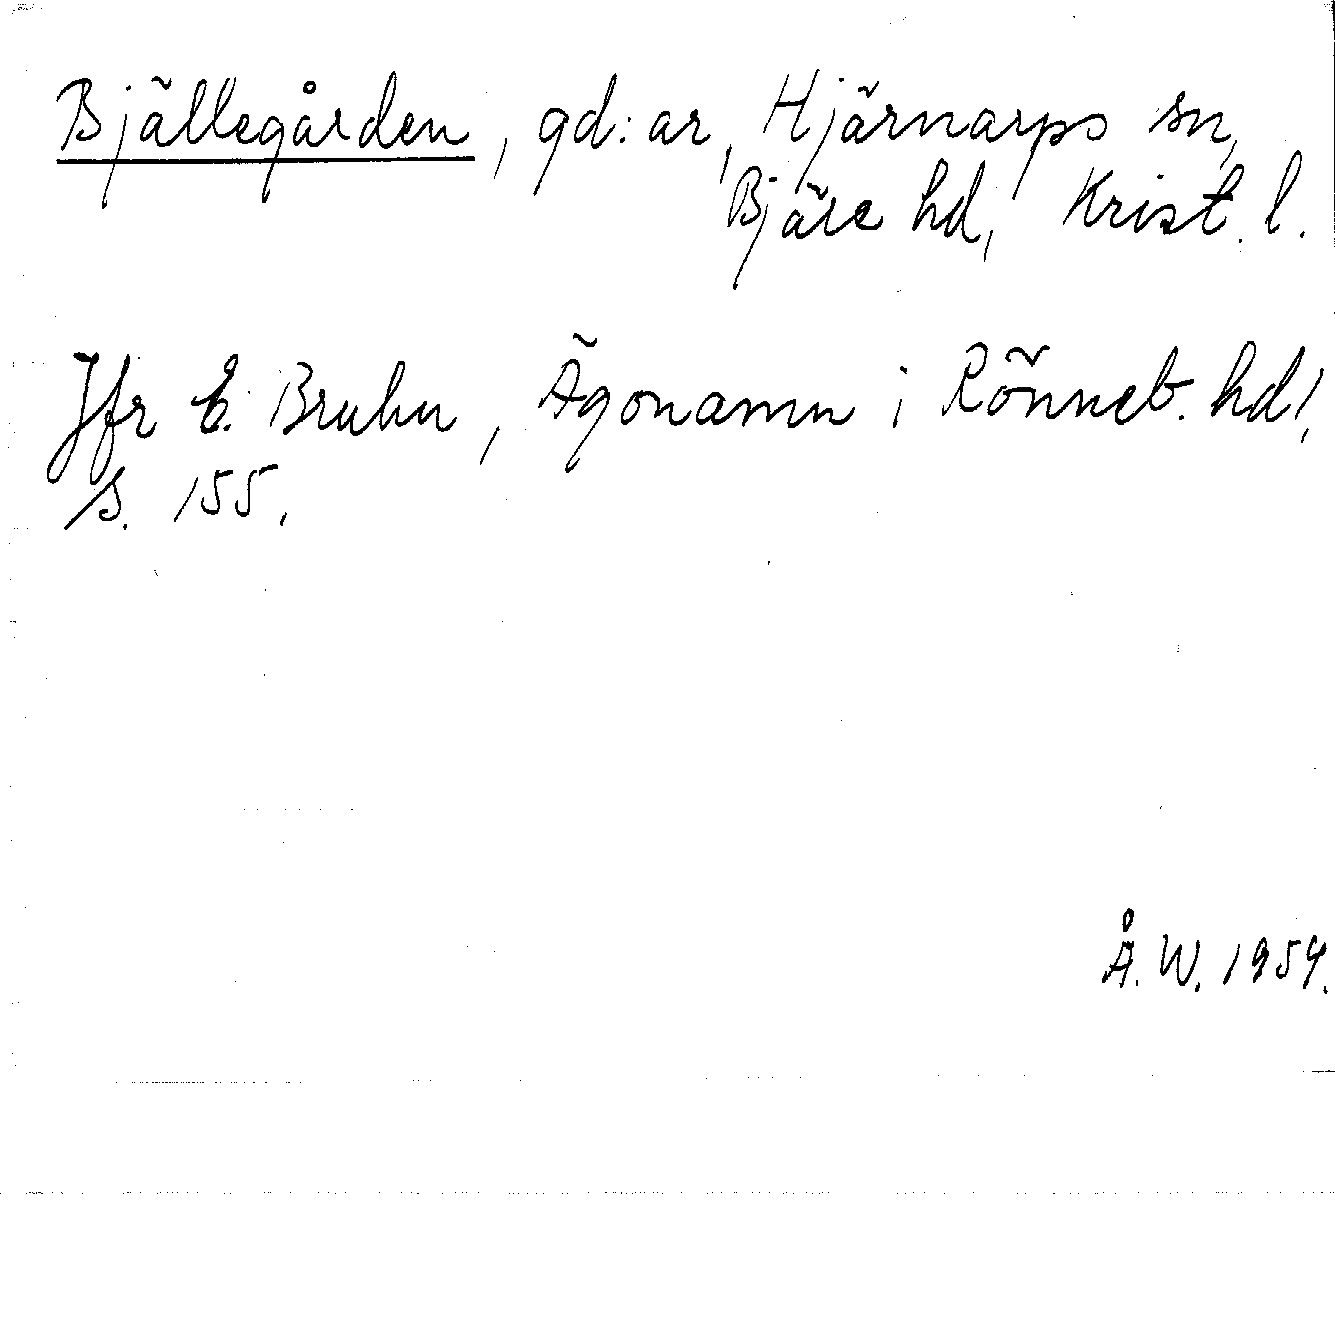 Bjällegården, gd:ar, Hjärnarps sn,
Bjäre hd, Krist. l.
Jfr E. Bruhn, Ägonamn i Rönneb. hd,
s. 155.
Å. W. 1954.